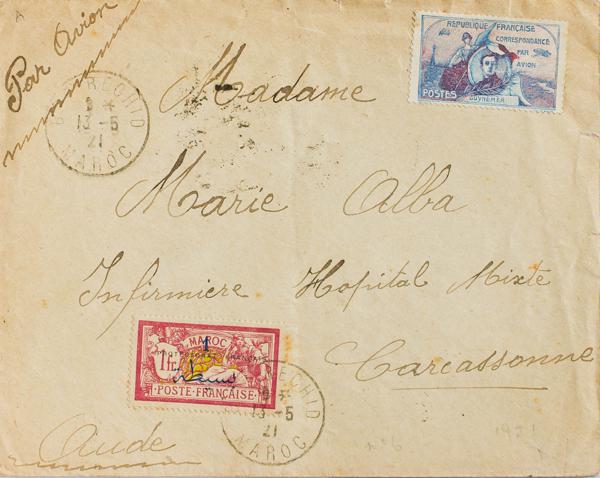 Par Avion
RÉPUBLIQUE FRANÇAISE
CORRESPONDANCE
PAR
AVION
POSTES
GUYNEMER
BERRECHID
13-5
21
MAROC
Madame
Marie Alba
Infirmiere Hopital Mixte
Carcassonne
Aude
MAROC
1
PROTECTORAT FRANÇAIS
1 fr.
POSTE FRANÇAISE
RECHID
13-5
21
MAROC
n°6
1921